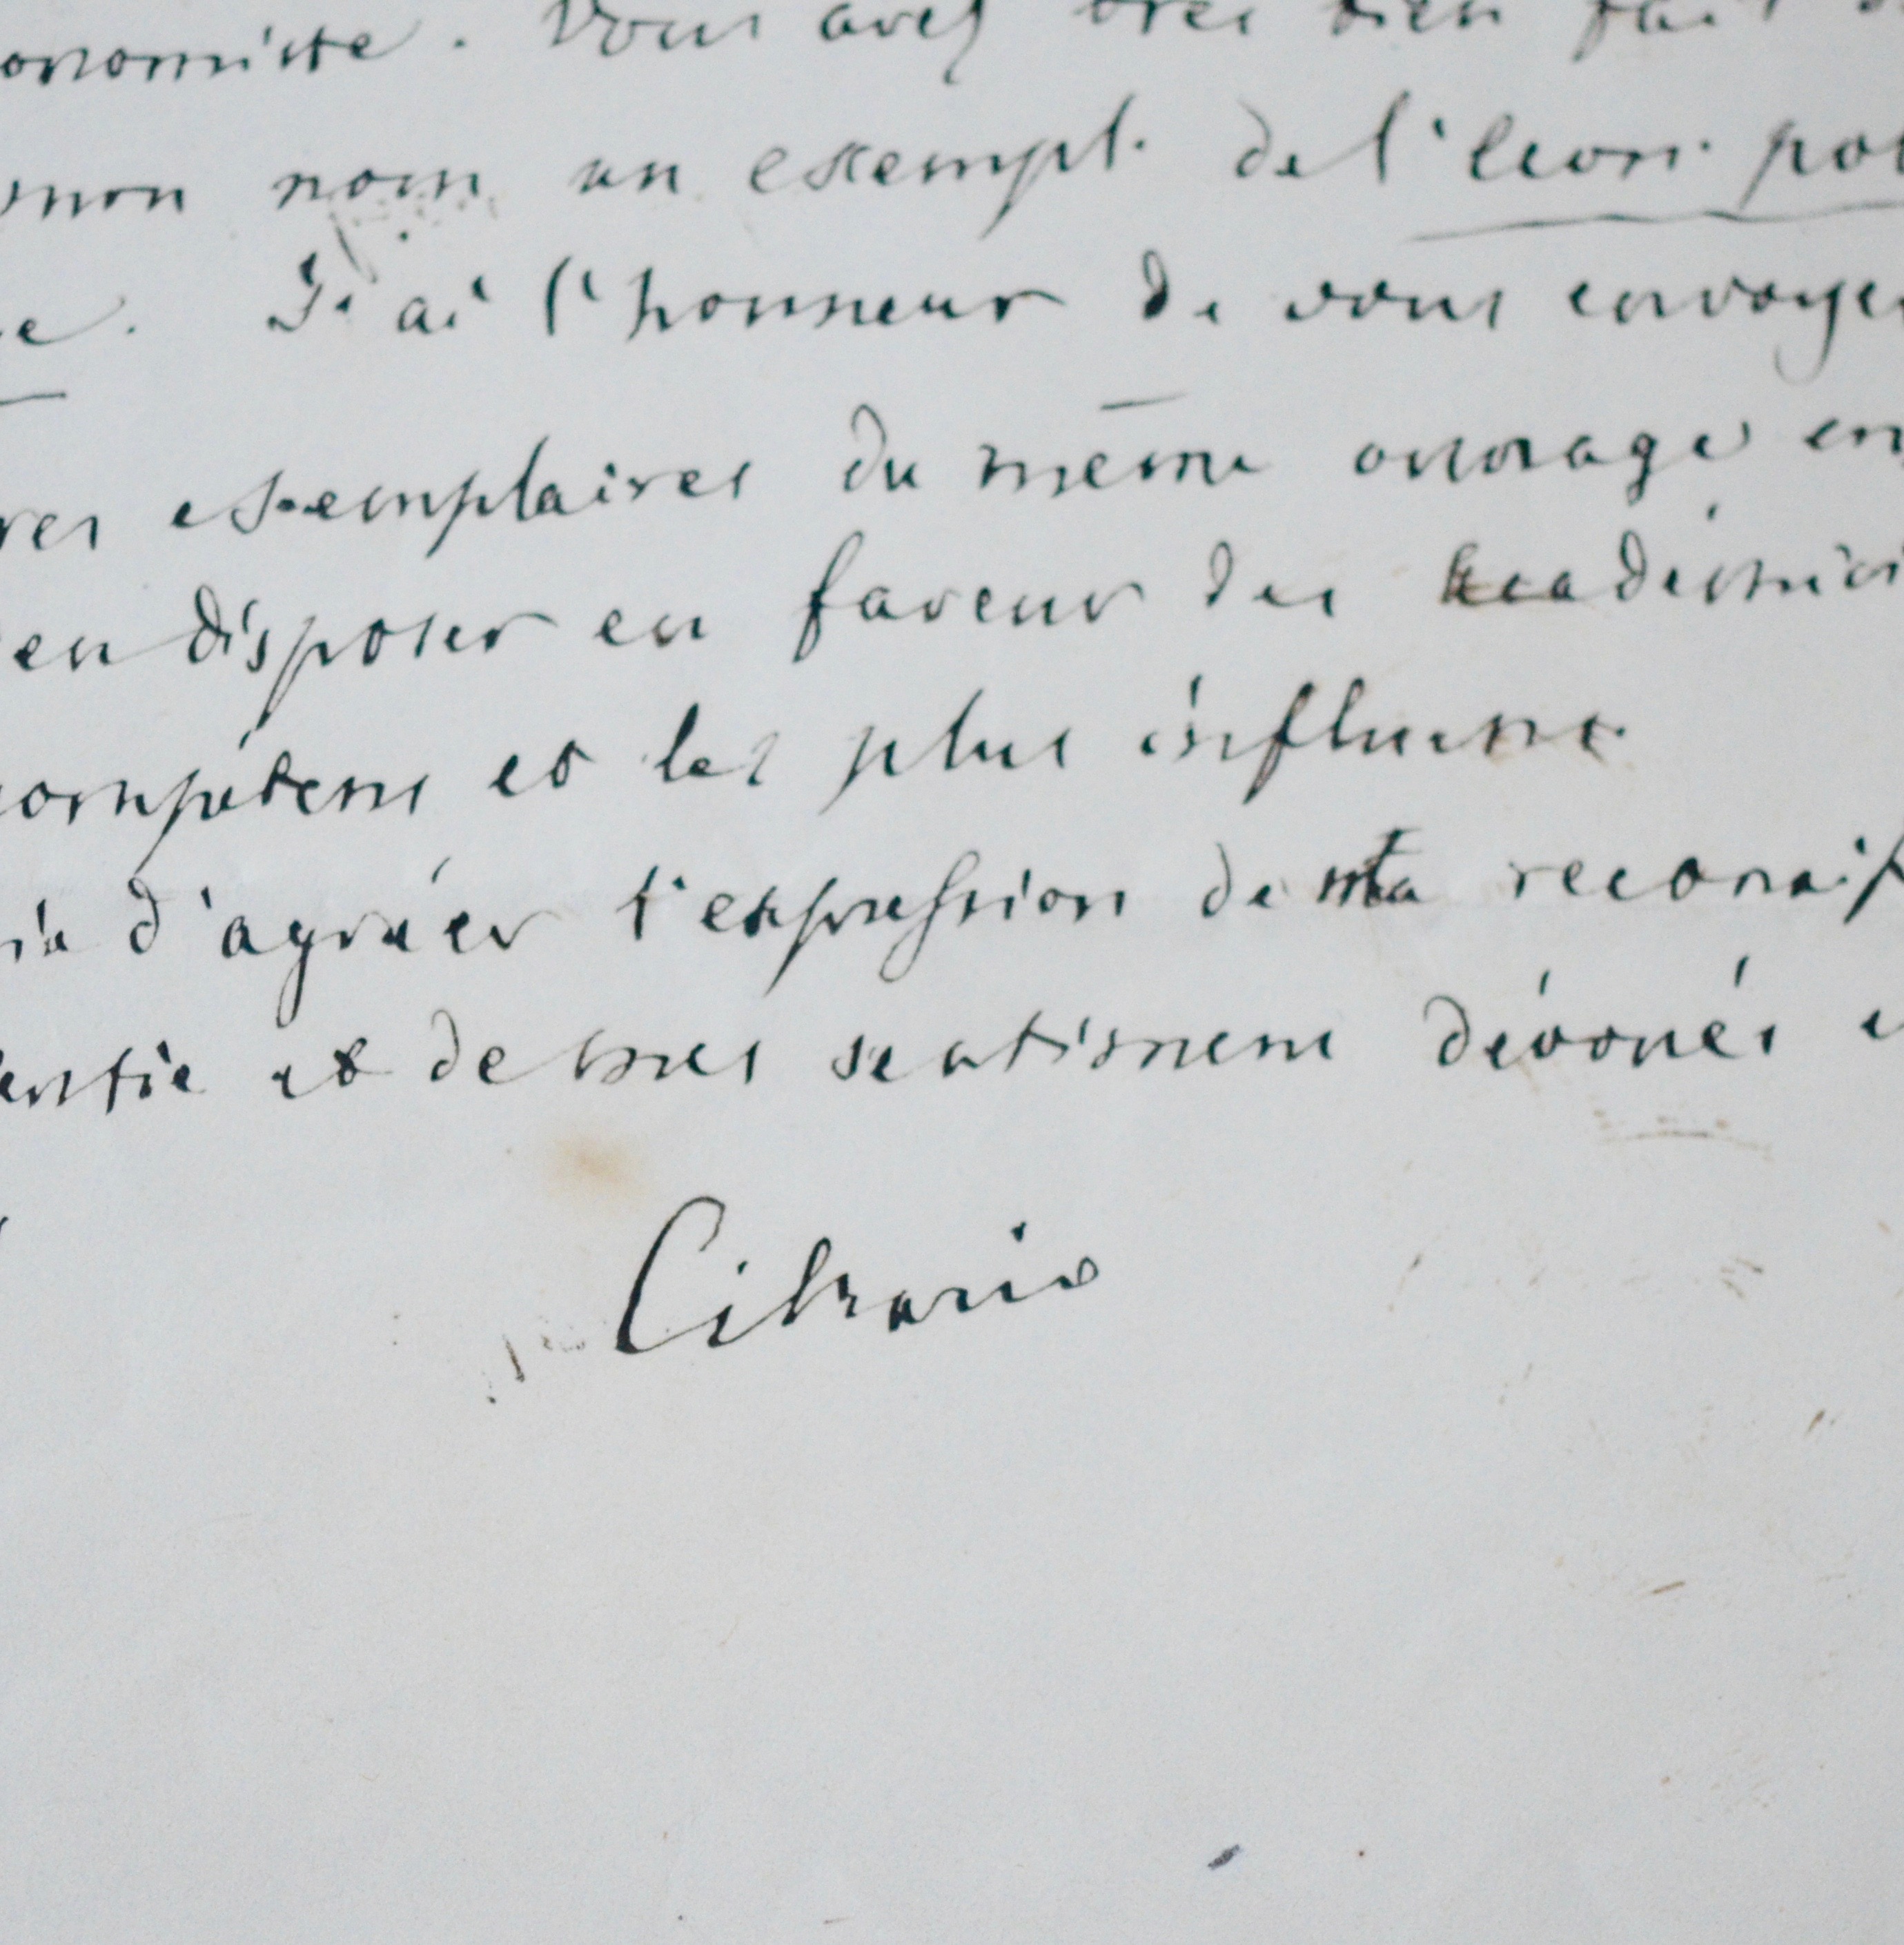 onomiste. Vous avez tres bien fait
mon nom un exempl. de l'écon. pol
e. J'ai l'honneur de vous envoyer
res exemplaires du même ouvrage en
en disposer en faveur des académici
compétens et les plus influens.
d'agréer l'expression de ma reconaiss
entie et de mes sentimens dévoués
Cibrario